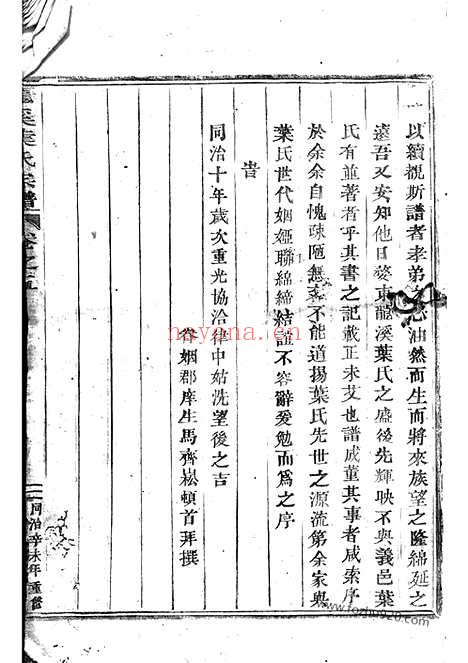 以續視斯譜者孝弟之心油然而生而將來族望之隆綿延之
遠吾又安知他日婺東龍溪葉氏之盛後先輝映不與義邑葉
氏有並著者乎其書之記載正未艾也譜成董其事者咸索序
於余余自愧疎陋無文不能道揚葉氏先世之源流第余家與
葉氏世代姻婭聯綿締結誼不容辭爰勉而為之序
旹
同治十年歲次重光協洽律中姑洗望後之吉
眷姻郡庠生馬齊崧頓首拜撰
龍溪葉氏宗譜
卷之五
同治辛未年重修
nayana.cn
www.fozhu920.com